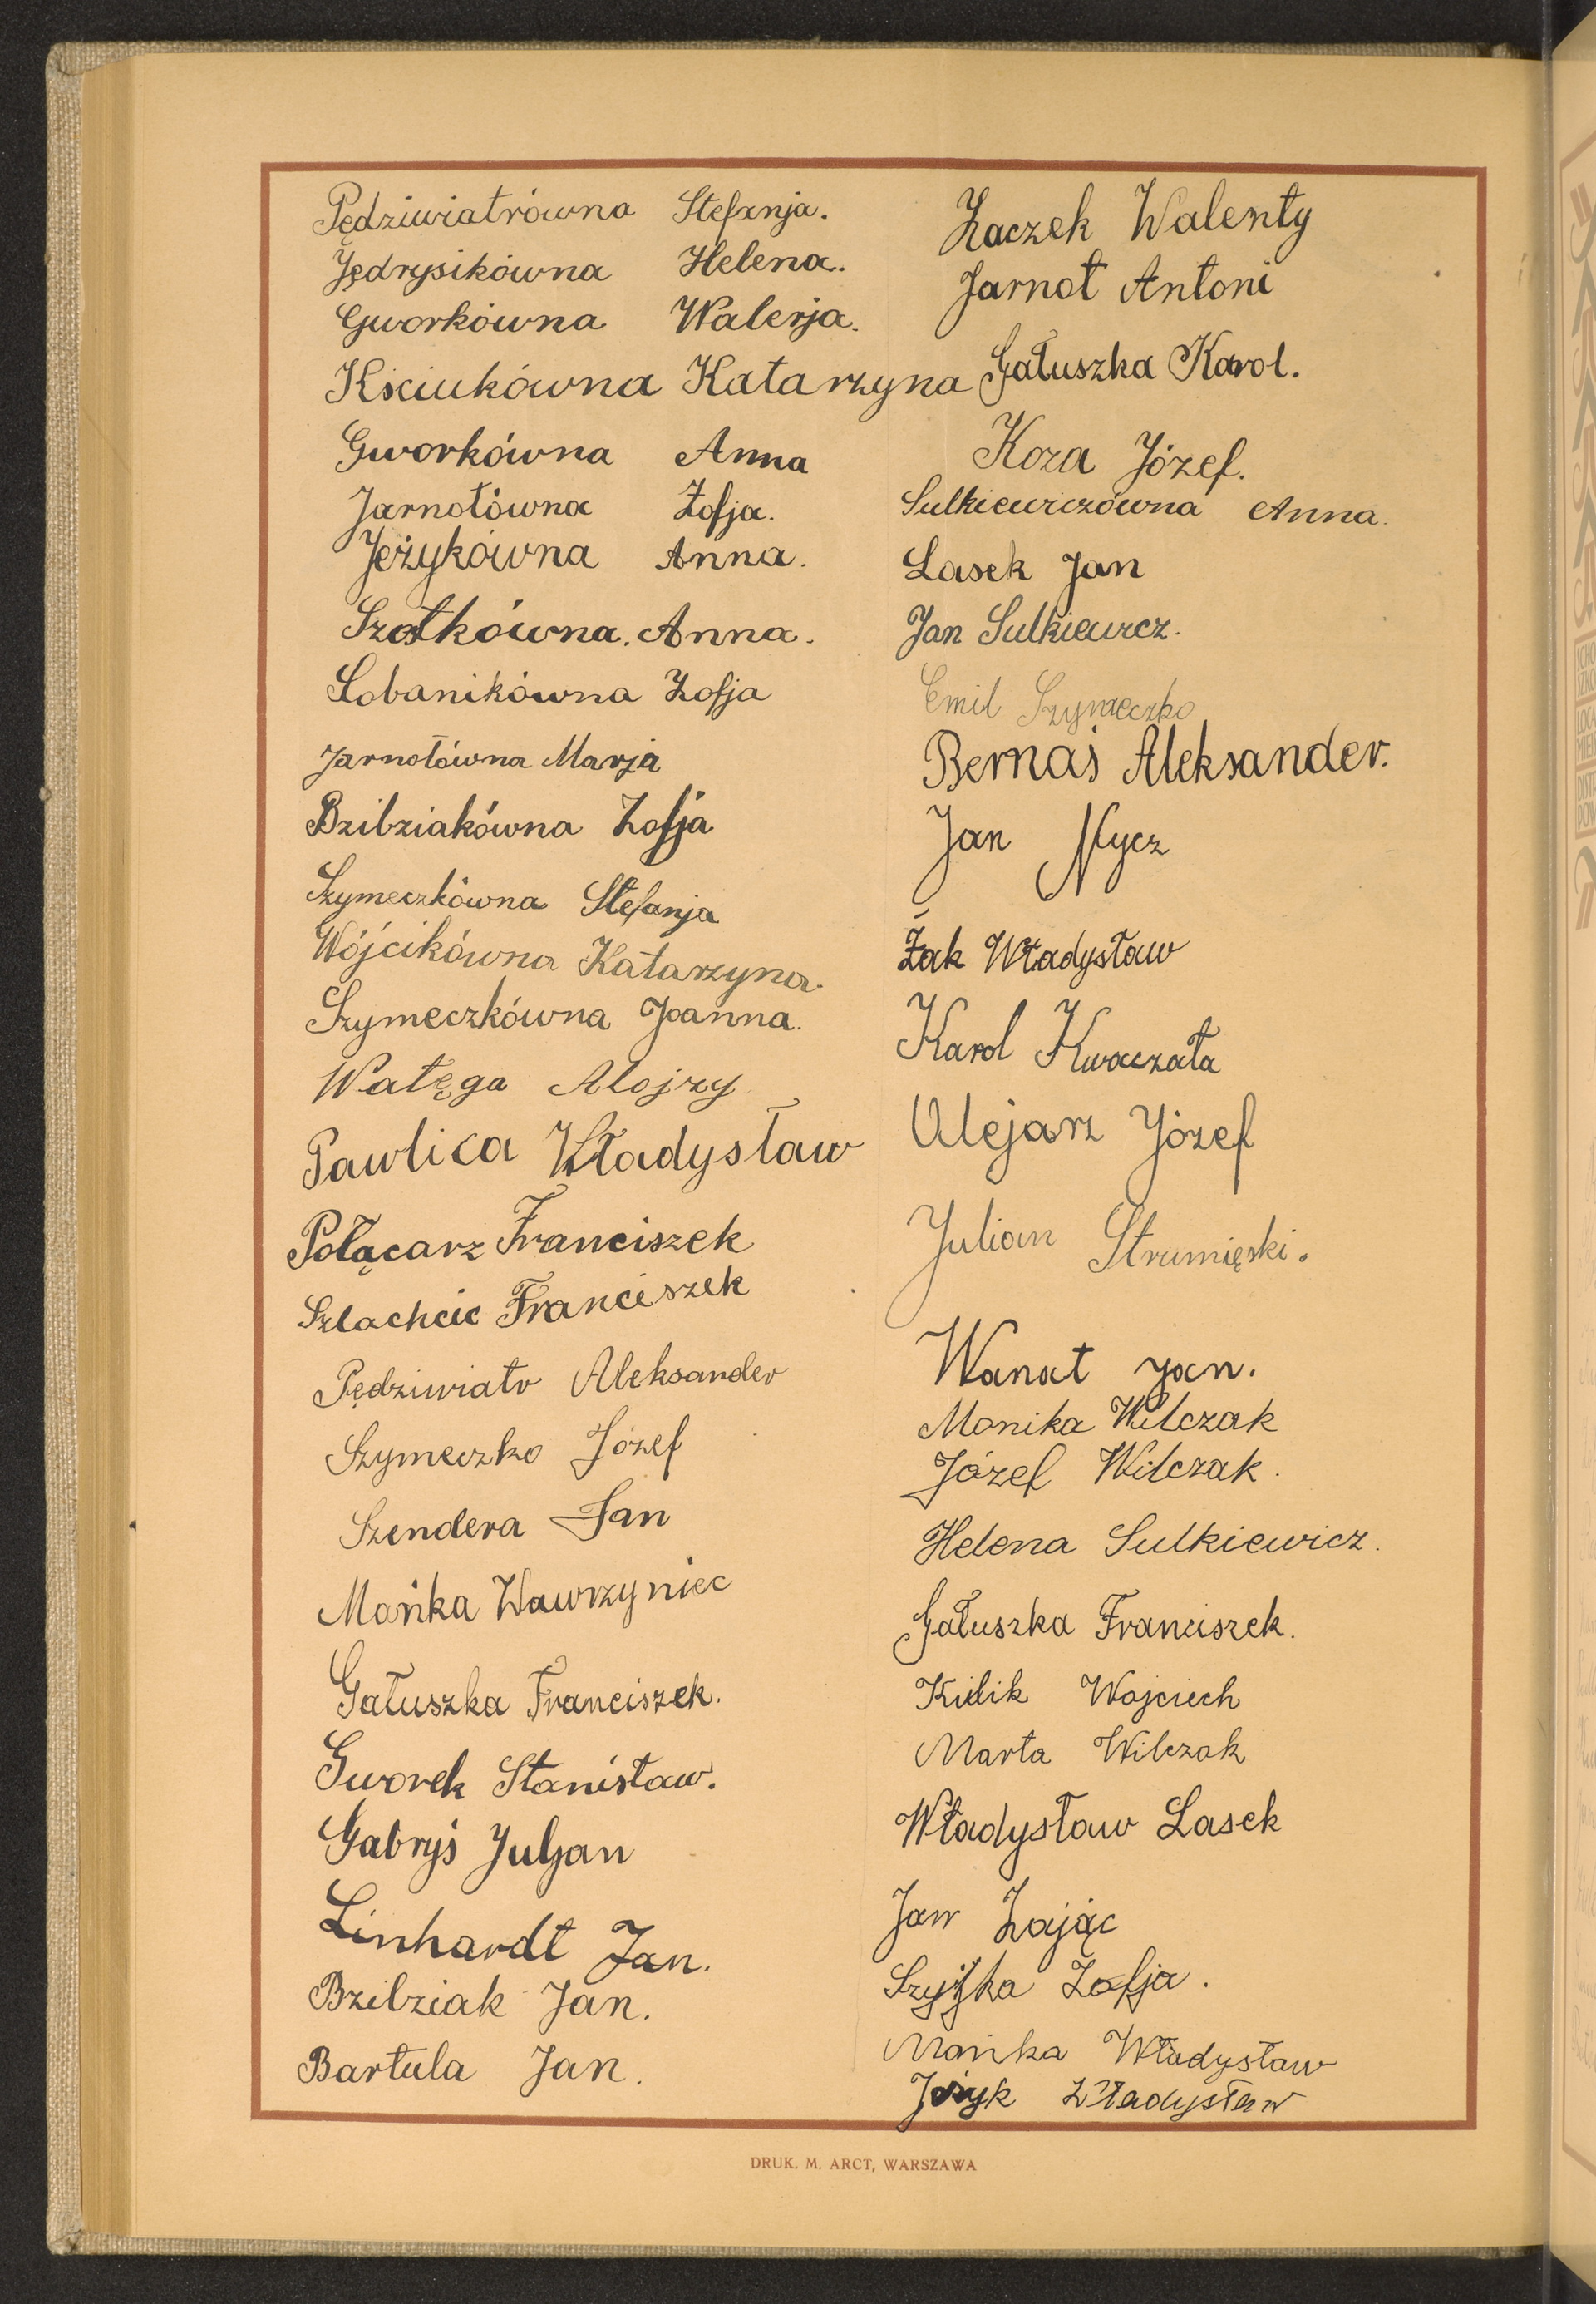 Pędziwiatrówna Stefanja.
Jędrysikówna Helena.
Gworkówna Walerja.
Kściukówna Katarzyna
Gworkówna Anna
Jarnotówna Zofja.
Jeżykówna Anna.
Szotkówna. Anna.
Lobanikówna Zofja
Jarnotówna Marja
Bzibziakówna Zofja
Szymeczkówna Stefanja
Wójcikówna Katarzyna.
Szymeczkówna Joanna.
Watęga Alojzy
Pawlica Władysław
Połącarz Franciszek
Szlachcic Franciszek
Pędziwiatr Aleksander
Szymeczko Józef
Szendera Jan
Mańka Wawrzyniec
Gałuszka Franciszek.
Gworek Stanisław.
Gabryś Juljan
Linhardt Jan.
Bzibziak Jan.
Bartula Jan.
Zaczek Walenty
Jarnot Antoni
Gałuszka Karol.
Koza Józef.
Sulkiewiczówna Anna.
Lasek Jan
Jan Sulkiewicz.
Emil Szymeczko
Bernaś Aleksander.
Jan Nycz
Żak Władysław
Karol Kwaczała
Olejarz Józef
Julian Strumięski.
Wanat Jan.
Monika Wilczak
Józef Wilczak.
Helena Sulkiewicz.
Gałuszka Franciszek.
Kidik Wojciech
Marta Wilczak
Władysław Lasek
Jan Zając
Szyjka Zofja.
Mańka Władysław
Jeżyk Władysław
DRUK. M. ARCT, WARSZAWA